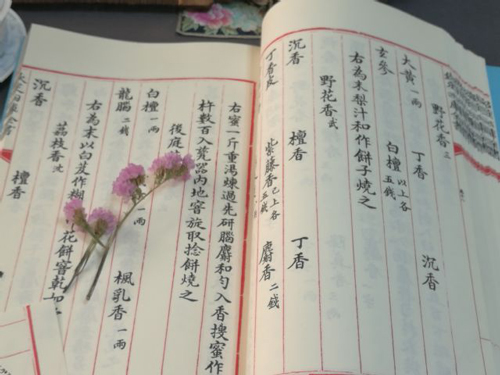 野花香三
大黃一兩 丁香 沉香
玄參 白檀以上各五錢
右為末梨汁和作餅子燒之
野花香貳
沉香 檀香 丁香
丁香皮 紫藤香已上各五錢 麝香二錢
右蜜一斤重湯煉過先研腦麝和勻入香搜蜜作
杵數百入甆器內地窨旋取捻餅燒之
後庭
白檀一兩 一兩 楓乳香一兩
龍腦二錢
右為末以白芨作糊 花餅窨乾
荔枝香沈
沉香 檀香